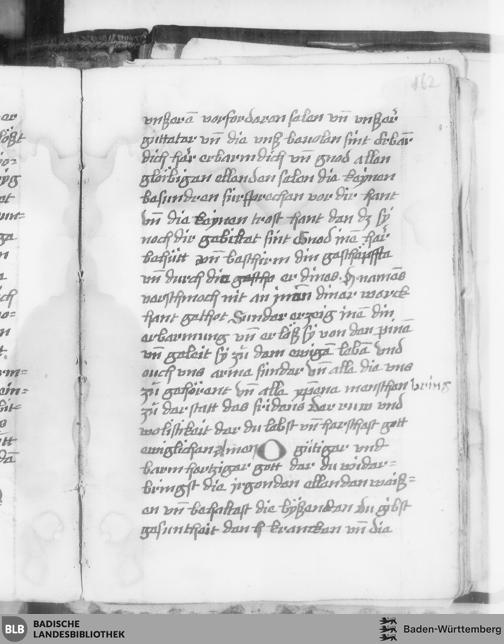 162
vnßerē vorfordaren selen vn̄ vnßer
guttatar vn̄ die vnß beuolen sint Erbār
dich här erbarm dich vn̄ gnod allen
gloibigen ellenden selen die keynen
besundren fürsprechen vor dir hant
vn̄ die keynen trost hant den dz sy
noch dir gebildet sint Gnod inē här
behütt vn̄ beschirm din geschöpffte
vn̄ durch die er dines namēs
verschmoch nit an dinar werck
hant gethot Sundar erzeig inē din
erbarmung vn̄ erlöß sy von den pinē
vn̄ geleit sy zů dem ewigē lebē vnd
ouch vns arme sündar vn̄ alle die vns
zů gehörent vn̄ alle menschen bring
zů dar statt des fridens dar ruw vnd
wolistikeit dar du lebst vn̄ harschest gott
ewiglichen Amen O gütigar vnd
barmhertzigar gott dar du widar=
bringst die jrgonden ellenden weiß=
en vn̄ du gibst
gesuntheit den krancken vn̄ die
BLB
BADISCHE
LANDESBIBLIOTHEK
Baden-Württemberg